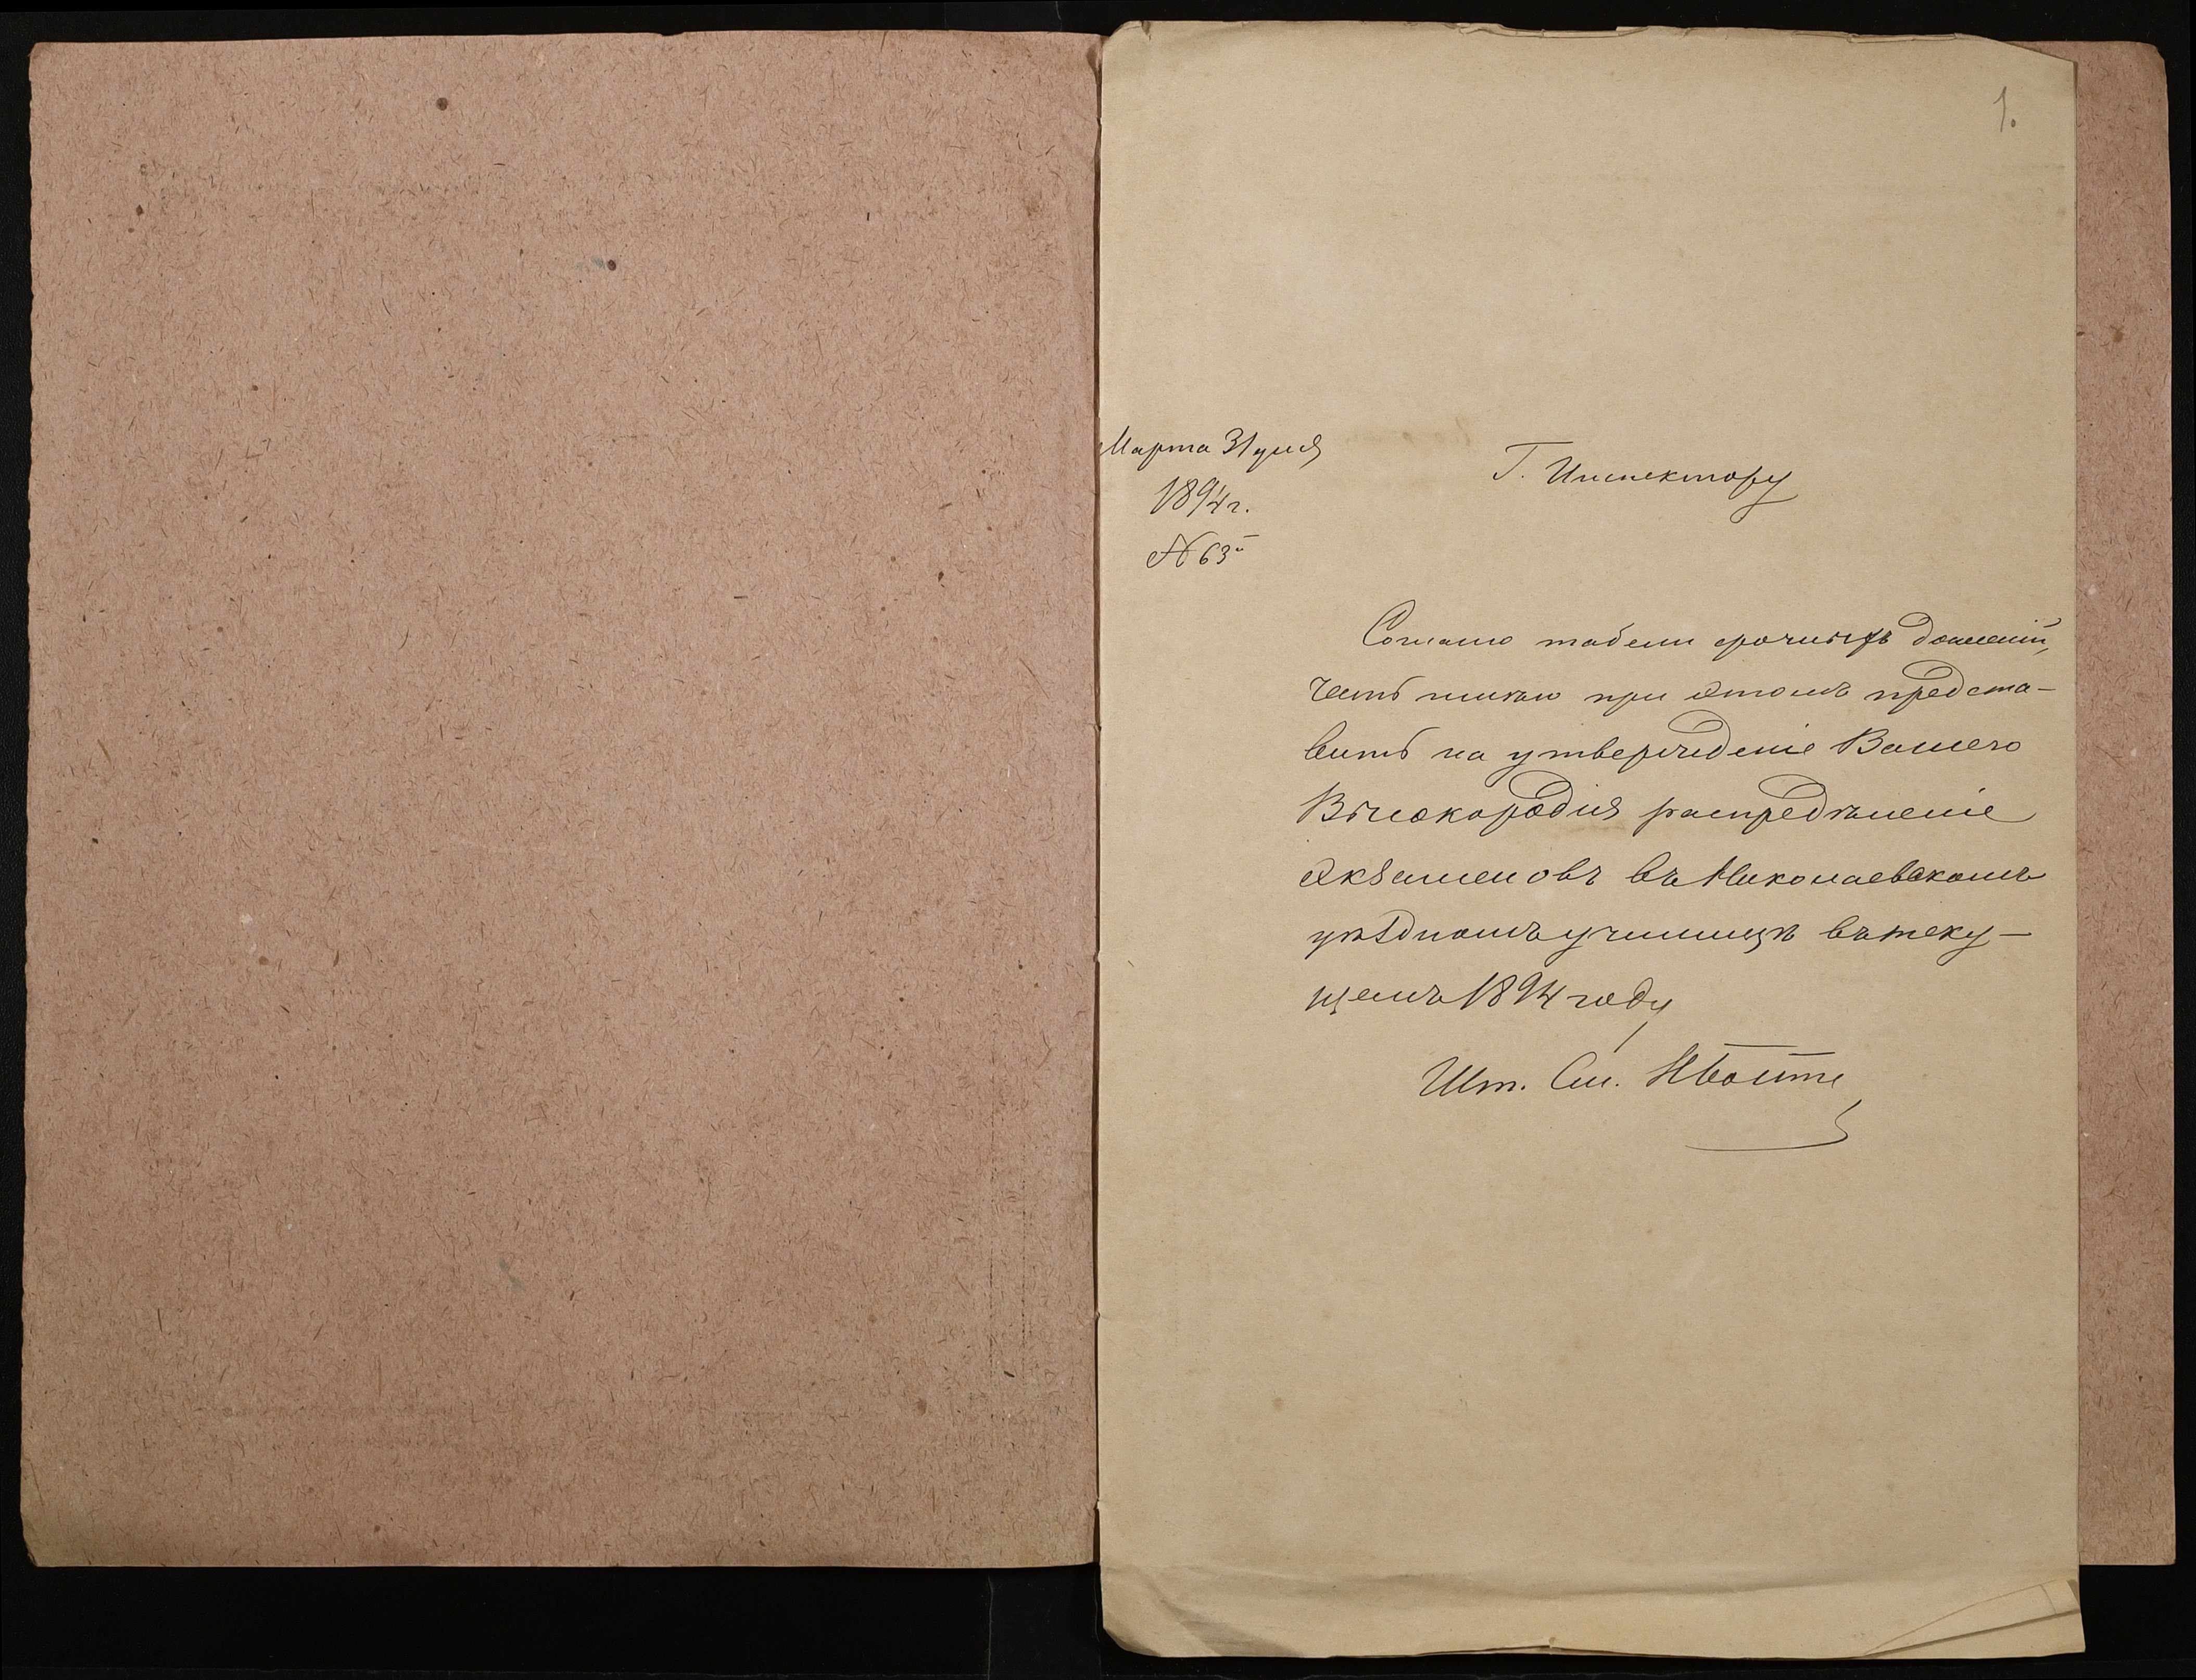 1.
Марта 31 дня
1894 г.
№ 63й
Г. Инспектору
Согласно табели срочныхъ донесеній,
честь имѣю при этомъ предста-
вить на утвержденіе Вашего
Высокородія распредѣленіе
экзаменовъ въ Николаевскомъ
уѣздномъ училищѣ въ теку-
щемъ 1894 году
Шт. См.